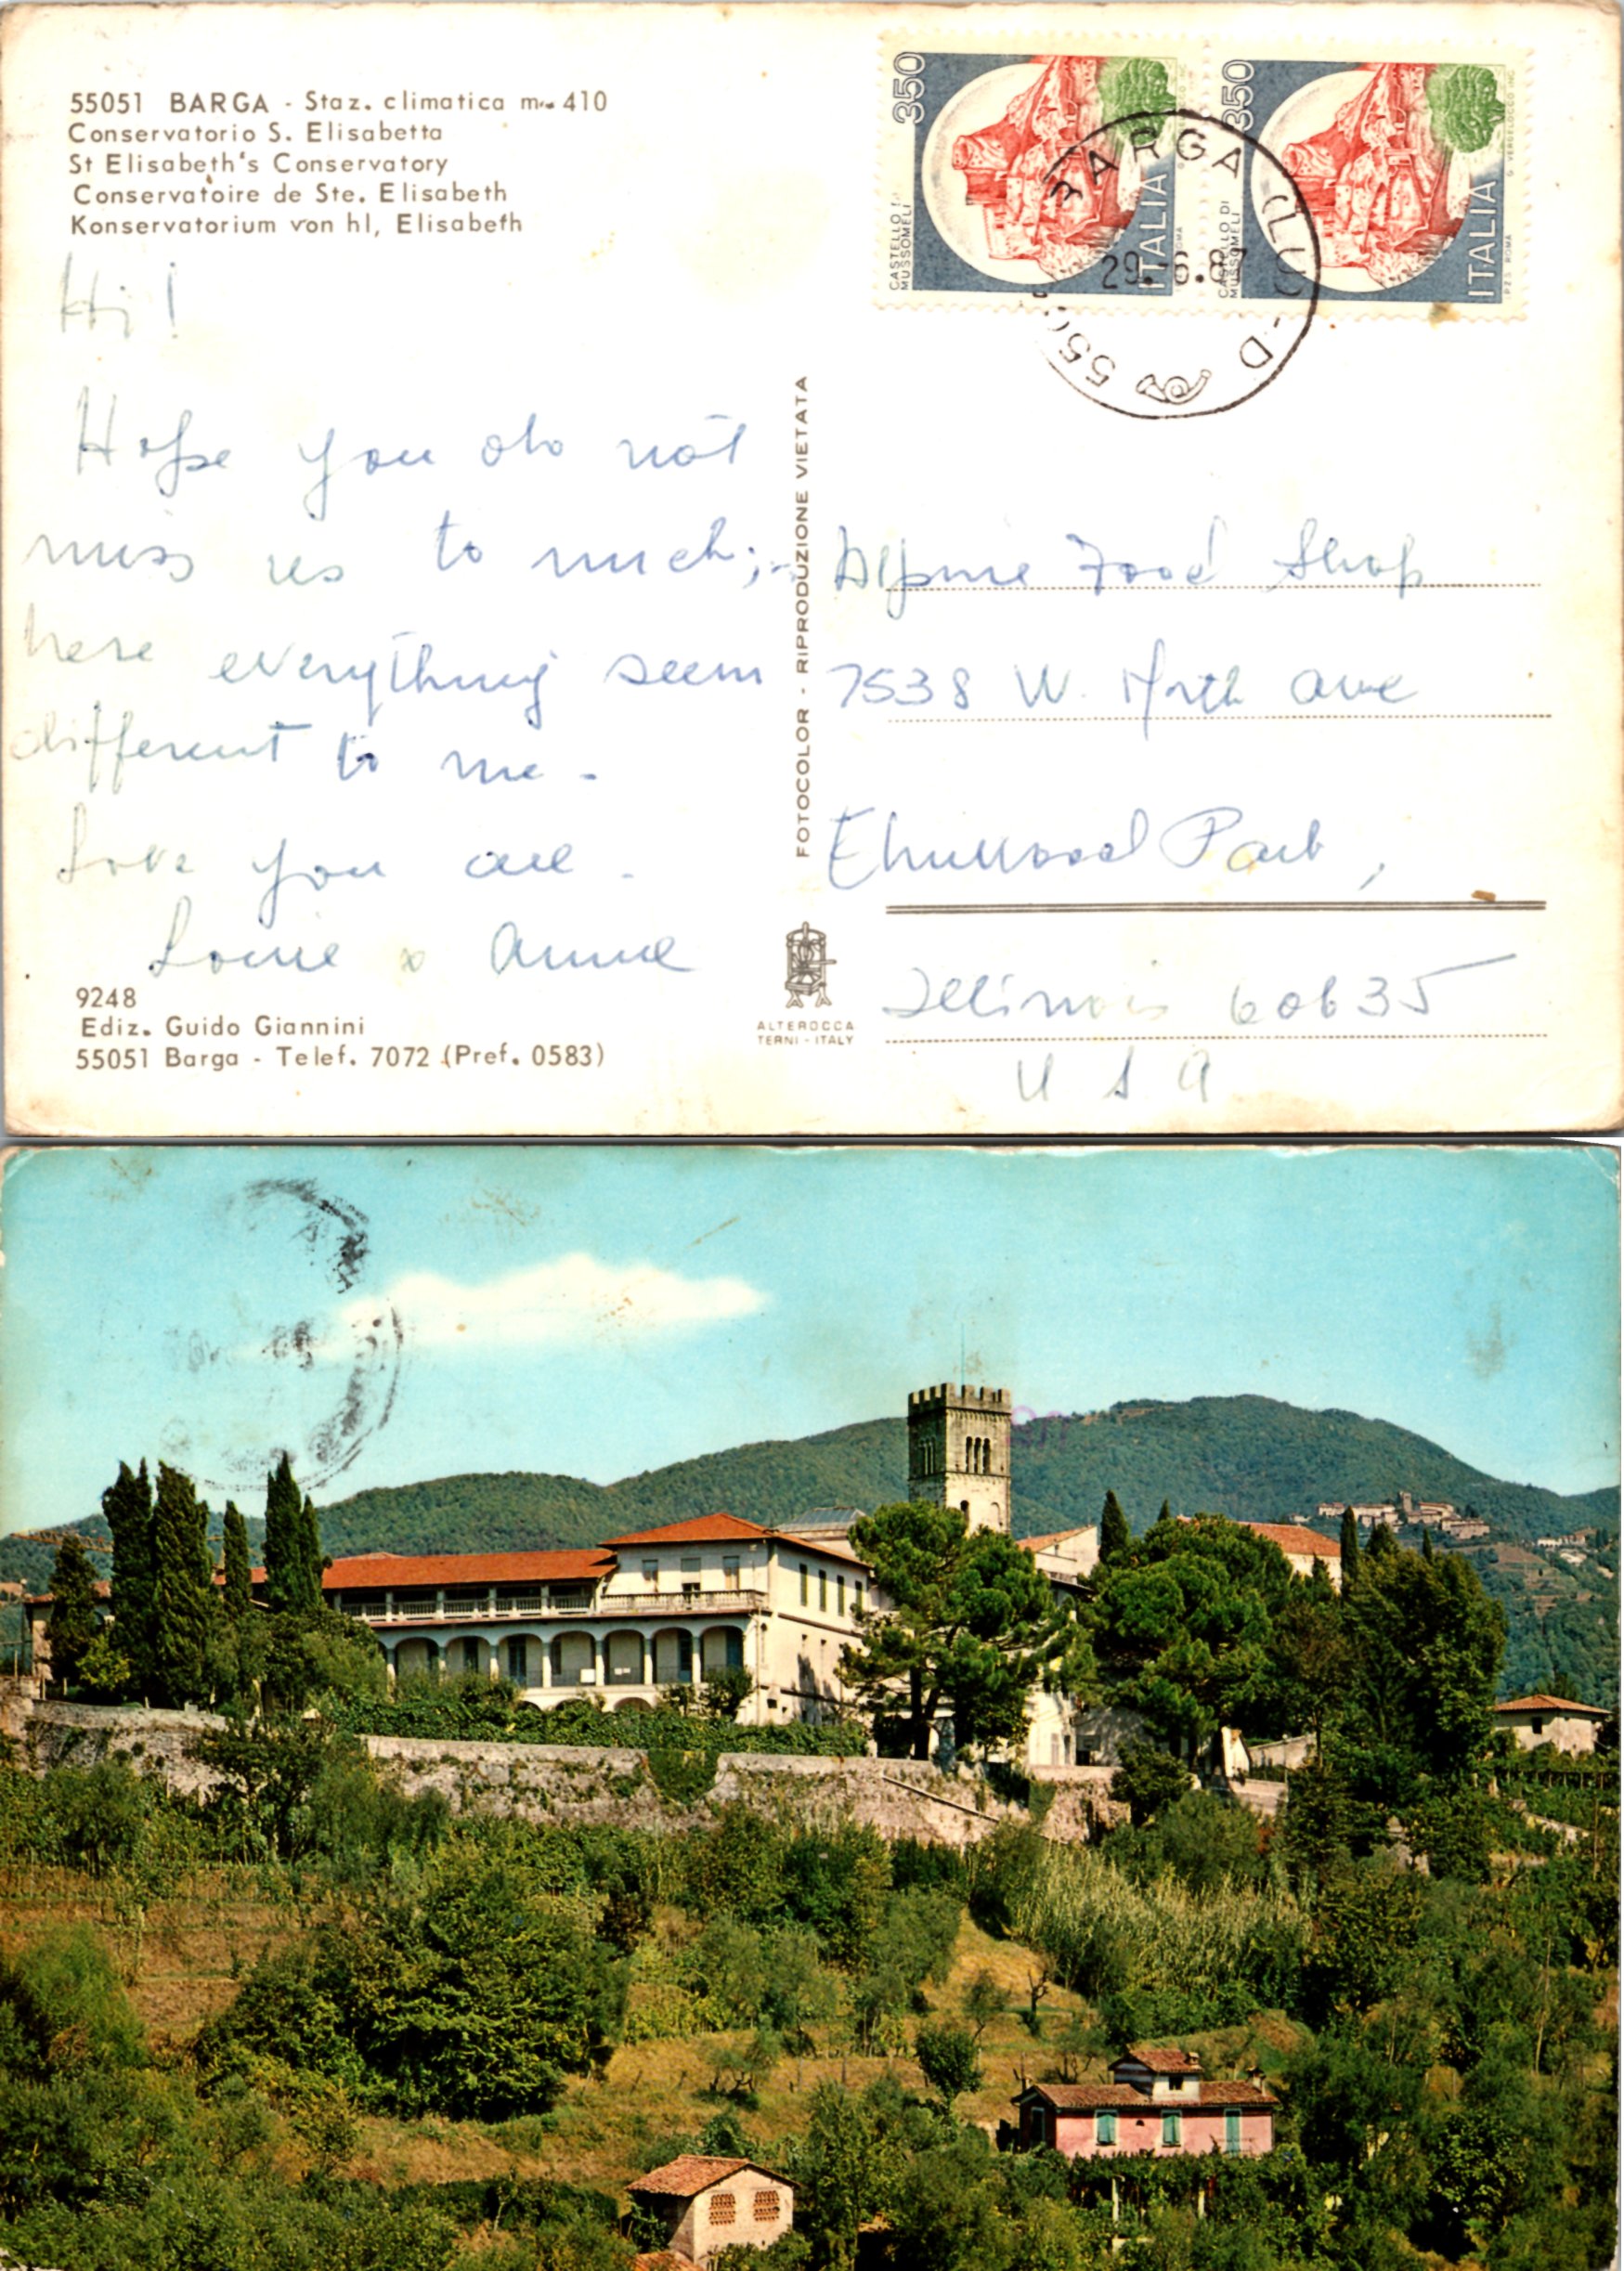 55051 BARGA - Staz. climatica m. 410
Conservatorio S. Elisabetta
St Elisabeth's Conservatory
Conservatoire de Ste. Elisabeth
Konservatorium von hl, Elisabeth
Hi!
Hope you do not
miss us to much;
here everything seem
different to me -
Love you all.
Louie & Anne
9248
Ediz. Guido Giannini
55051 Barga - Telef. 7072 (Pref. 0583)
FOTOCOLOR - RIPRODUZIONE VIETATA
ALTEROCCA
TERNI - ITALY
350
CASTELLO DI
MUSSOMELI
ITALIA
350
CASTELLO DI
MUSSOMELI
ITALIA
G. VERDELOCCO INC.
P.Z.S. ROMA
BARGA (LU) - D
29.6.87
Alpine Food Shop
7538 W. North Ave
Elmwood Park,
Illinois 60635
USA